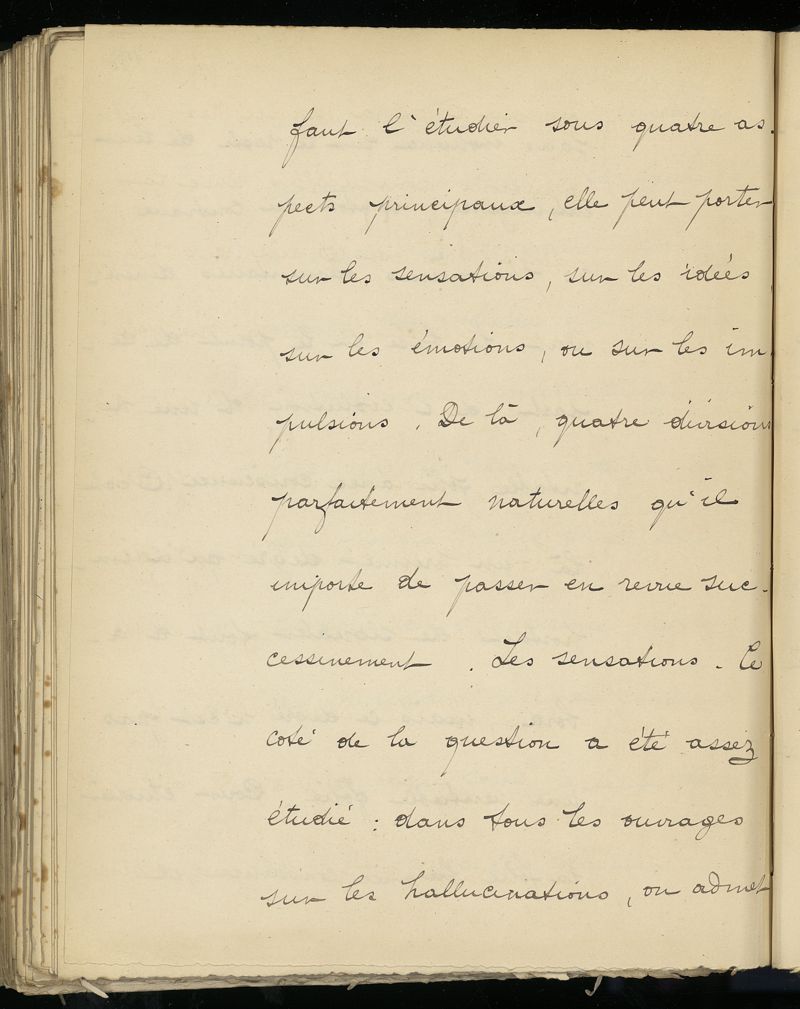 faut l'étudier sous quatre as-
pects principaux, elle peut porter
sur les sensations, sur les idées
sur les émotions, ou sur les im
pulsions. De là, quatre divisions
parfaitement naturelles qu'il
importe de passer en revue suc-
cessivement. Les sensations. Ce
coté de la question a été assez
étudié : dans tous les ouvrages
sur les hallucinations, on admet